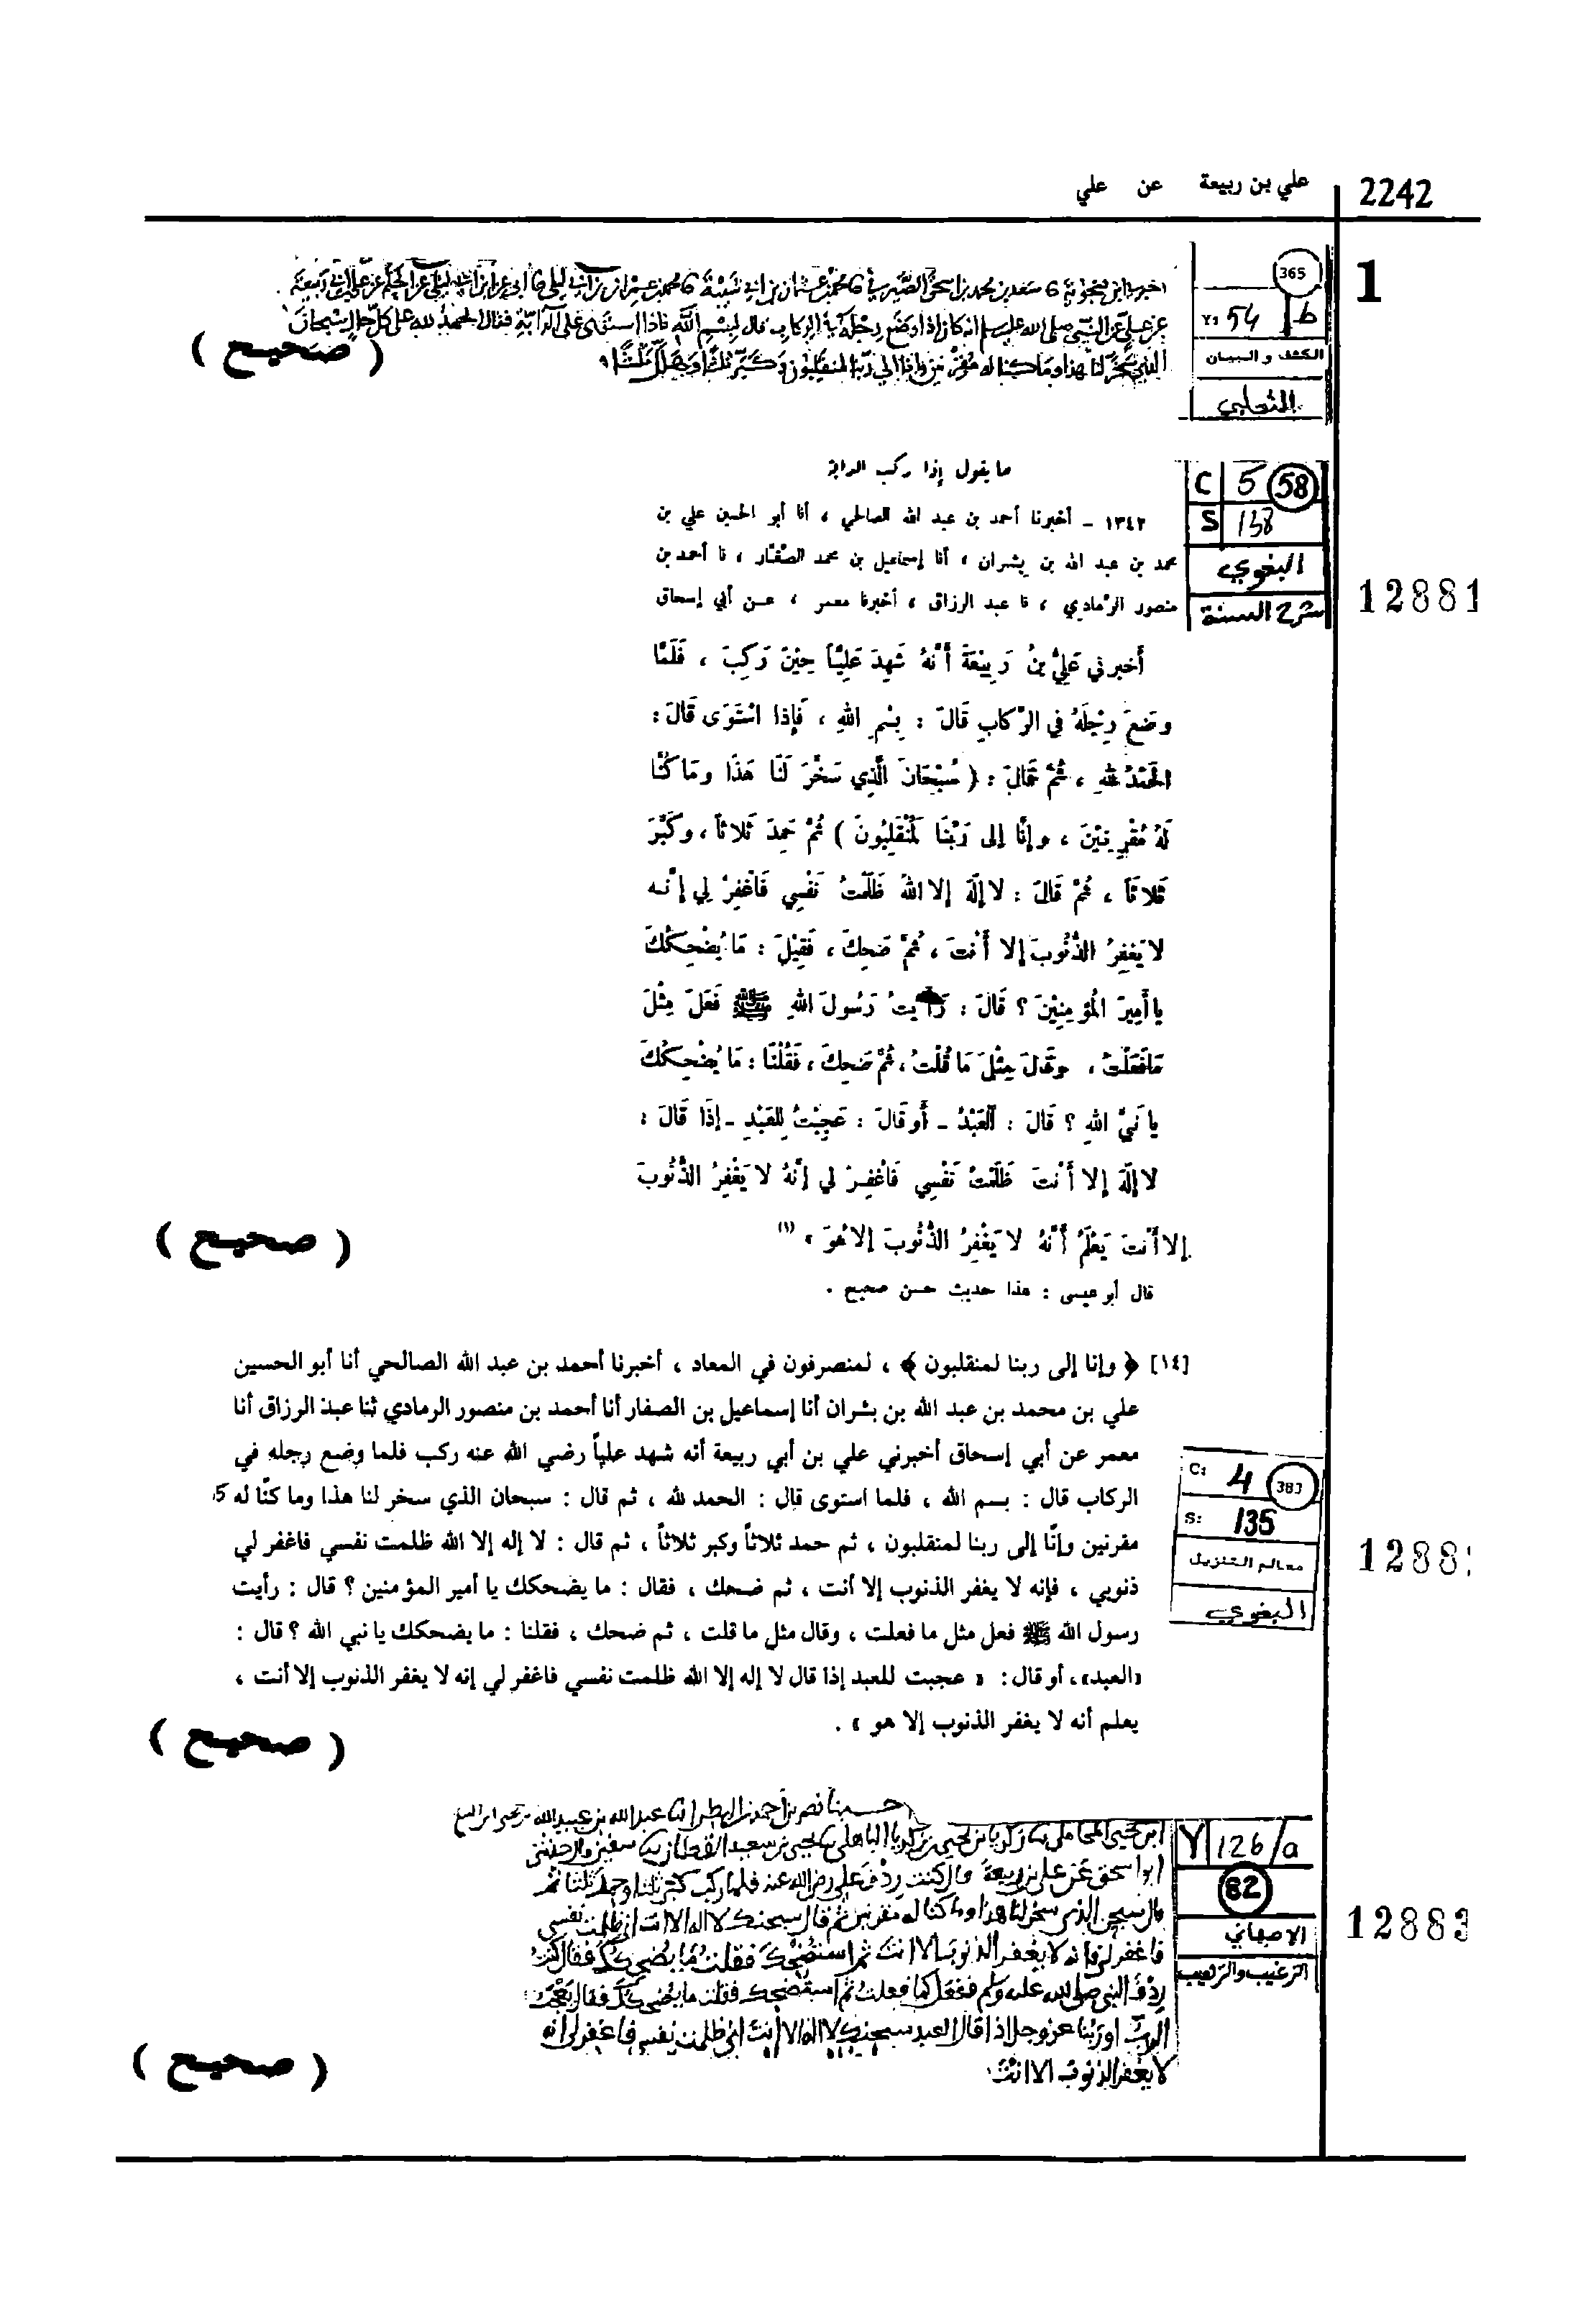 2242
علي بن ربيعة عن علي
1
365
Y: 54 b
الكشف و البيان
الثعلبي
عن علي عن النبي صلى الله عليه وسلم انه كان إذا وضع رجله في الركاب قال بسم الله فاذا استوى على الدابة فقال الحمد لله على كل حال سبحان
الذي سخر لنا هذا وما كنا له مقرنين وانا الى ربنا لمنقلبون وكبر ثلثا وهلل ثلثا
( صحيح )
ما يقول إذا ركب الدابة
C 5 58
S 138
البغوي
شرح السنة
12881
١٣٤٢ ـ أخبرنا أحمد بن عبد الله الصالحي ، أنا أبو الحسين علي بن
محمد بن عبد الله بن بشران ، أنا إسماعيل بن محمد الصَّفَّار ، نا أحمد بن
منصور الرَّمادي ، نا عبد الرزاق ، أخبرنا معمر ، عن أبي إسحاق
أَخبرني عَلِيُّ بنُ رَبِيْعَةَ أَنَّهُ شَهِدَ عَلِيَّاً حِيْنَ رَكِبَ ، فَلَمَّا
وضَعَ رِجْلَهُ في الرِّكابِ قَالَ : بِسْمِ اللهِ ، فَإِذا اسْتَوَى قَالَ :
الحَمْدُ للهِ ، ثُمَّ قَالَ : ( سُبْحَانَ الَّذِي سَخَّرَ لَنَا هَذَا وَمَا كُنَّا
لَهُ مُقْرِنِيْنَ ، وإِنَّا إِلى رَبِّنَا لَمُنْقَلِبُونَ ) ثُمَّ حَمِدَ ثَلاثاً ، وكَبَّرَ
ثَلاثاً ، ثُمَّ قَالَ : لا إِلَهَ إلا اللهُ ظَلَمْتُ نَفْسِي فَاغْفِرْ لِي إِنَّه
لا يَغفِرُ الذُّنُوبَ إلا أَنْتَ ، ثُمَّ ضَحِكَ ، فَقِيْلَ : مَا يُضْحِكُكَ
يا أَمِيرَ المُؤمِنِيْنَ ؟ قَالَ : رَأَيتُ رَسُولَ اللهِ ﷺ فَعَلَ مِثْلَ
مَا فَعَلْتُ ، وقَالَ مِثْلَ مَا قُلْتُ ، ثُمَّ ضَحِكَ ، فَقُلْنَا : مَا يُضْحِكُكَ
يا نَبِيَّ اللهِ ؟ قَالَ : العَبْدُ ـ أَو قَالَ : عَجِبْتُ لِلعَبْدِ ـ إِذَا قَالَ :
لا إِلَهَ إِلا أَنْتَ ظَلَمْتُ نَفْسِي فَاغْفِرْ لي إِنَّهُ لا يَغْفِرُ الذُّنُوبَ
إلا أَنْتَ يَعْلَمُ أَنَّهُ لا يَغْفِرُ الذُّنُوبَ إلا هُوَ » (١)
( صحيح )
قال أبو عيسى : هذا حديث حسن صحيح .
[١٤] ﴿ وإنا إلى ربنا لمنقلبون ﴾ ، لمنصرفون في المعاد ، أخبرنا أحمد بن عبد الله الصالحي أنا أبو الحسين
علي بن محمد بن عبد الله بن بشران أنا إسماعيل بن الصفار أنا أحمد بن منصور الرمادي ثنا عبد الرزاق أنا
معمر عن أبي إسحاق أخبرني علي بن أبي ربيعة أنه شهد علياً رضي الله عنه ركب فلما وضع رجله في
الركاب قال : بسم الله ، فلما استوى قال : الحمد لله ، ثم قال : سبحان الذي سخر لنا هذا وما كنّا له
مقرنين وإنّا إلى ربنا لمنقلبون ، ثم حمد ثلاثاً وكبر ثلاثاً ، ثم قال : لا إله إلا الله ظلمت نفسي فاغفر لي
ذنوبي ، فإنه لا يغفر الذنوب إلا أنت ، ثم ضحك ، فقال : ما يضحكك يا أمير المؤمنين ؟ قال : رأيت
رسول الله ﷺ فعل مثل ما فعلت ، وقال مثل ما قلت ، ثم ضحك ، فقلنا : ما يضحكك يا نبي الله ؟ قال :
«العبد» ، أو قال : « عجبت للعبد إذا قال لا إله إلا الله ظلمت نفسي فاغفر لي إنه لا يغفر الذنوب إلا أنت ،
يعلم أنه لا يغفر الذنوب إلا هو » .
( صحيح )
C: 4 383
S: 135
معالم التنزيل
البغوي
1288
Y 126/a
82
الاصبهاني
الترغيب والترهيب
12883
ابو اسحق عن علي بن ربيعة قال كنت ردف علي رضي الله عنه فلما ركب كبر ثلثا وحمد ثلثا ثم
قال سبحن الذي سخر لنا هذا وما كنا له مقرنين ثم قال سبحنك لا اله الا انت اني ظلمت نفسي
فاغفر لي فانه لا يغفر الذنوب الا انت ثم استضحك فقلت ما يضحكك فقال كنت
ردف النبي صلى الله عليه وسلم ففعل كما فعلت ثم استضحك فقلت ما يضحكك فقال يعجب
الرب او ربنا عز وجل اذا قال العبد سبحنك لا اله الا انت اني ظلمت نفسي فاغفر لي انه
لا يغفر الذنوب الا انت
( صحيح )